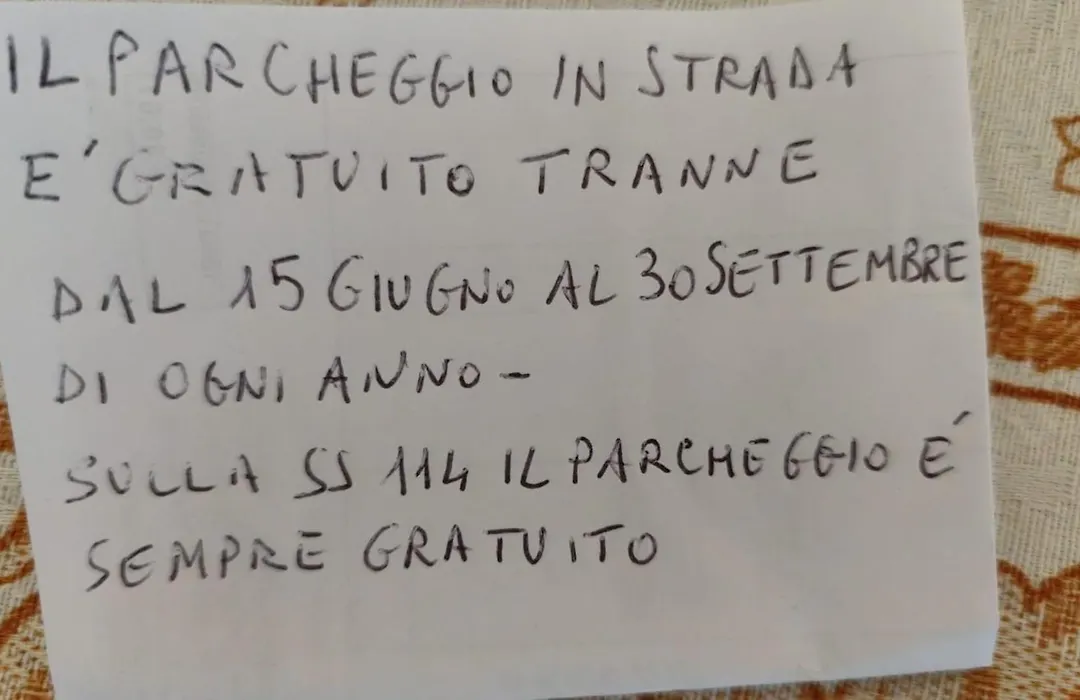 IL PARCHEGGIO IN STRADA
E' GRATUITO TRANNE
DAL 15 GIUGNO AL 30 SETTEMBRE
DI OGNI ANNO -
SULLA SS 114 IL PARCHEGGIO E'
SEMPRE GRATUITO